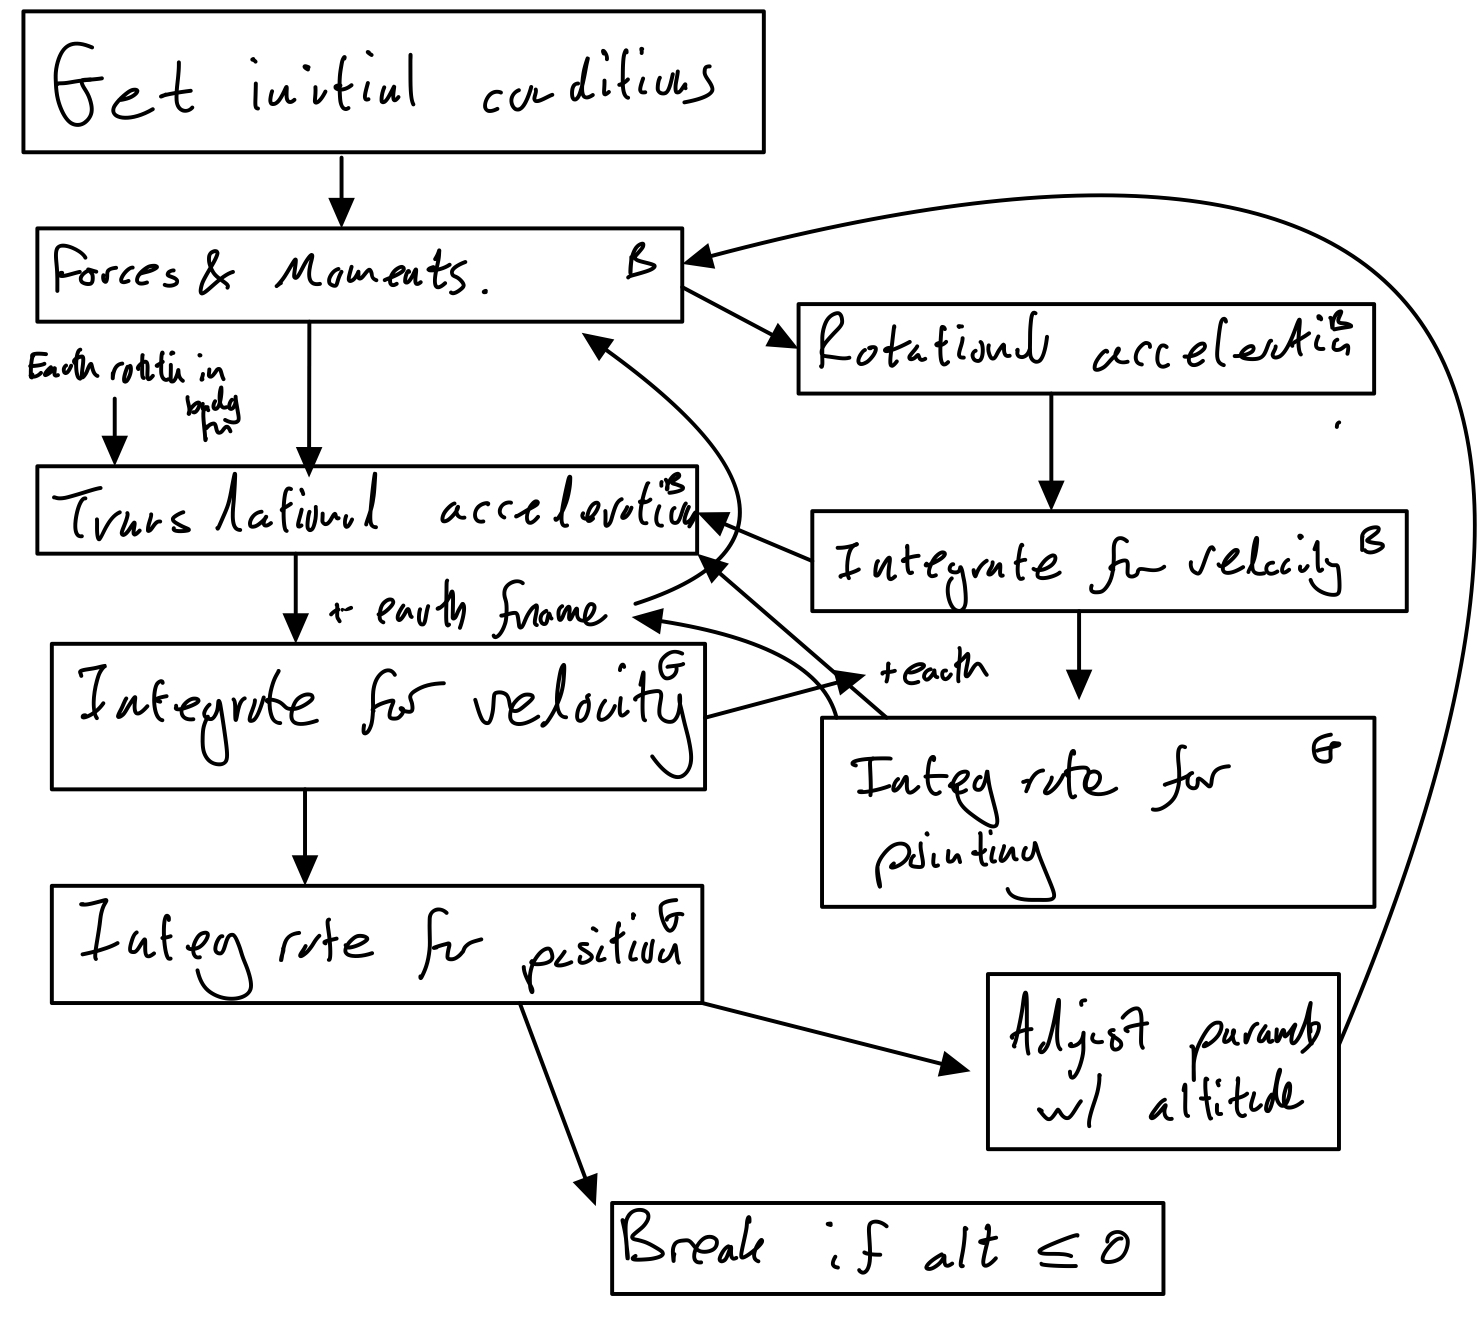 Get initial conditions
Forces & Moments. B
Rotational acceleration B
Earth rotation in
body
Translational acceleration B
Integrate for velocity B
+ earth frame
Integrate for velocity G
+ earth
Integrate for G
pointing
Integrate for position G
Adjust params
w/ altitude
Break if alt ≤ 0